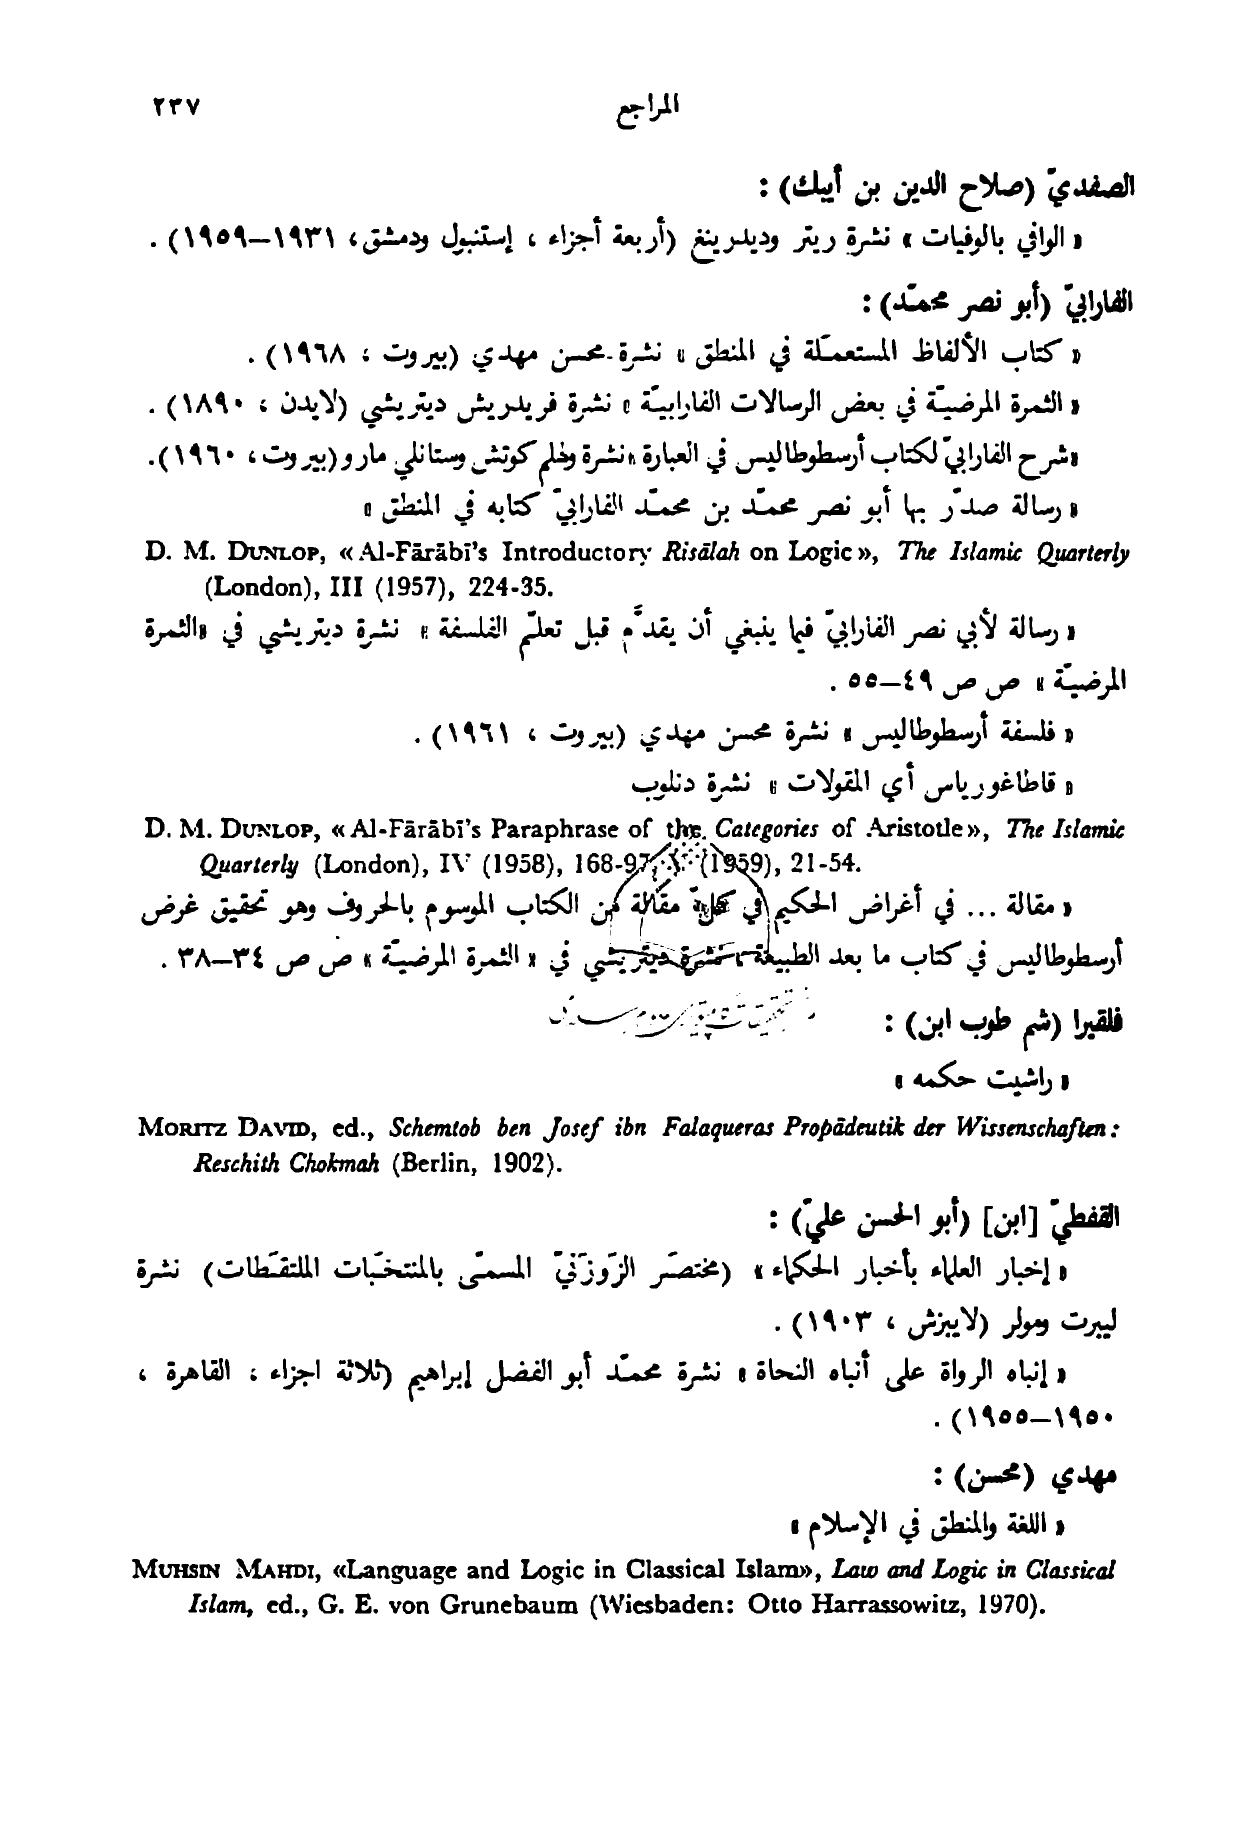 المراجع ٢٣٧
الصفديّ (صلاح الدين بن أيبك) :
« الوافي بالوفيات » نشرة ريتر وديدرينغ (أربعة أجزاء ، إستنبول ودمشق، ١٩٣١–١٩٥٩) .
الفارابيّ (أبو نصر محمّد) :
« كتاب الألفاظ المستعملة في المنطق » نشرة محسن مهدي (بيروت ، ١٩٦٨) .
« الثمرة المرضيّة في بعض الرسالات الفارابيّة » نشرة فريدريش ديتريشي (لايدن ، ١٨٩٠) .
«شرح الفارابيّ لكتاب أرسطوطاليس في العبارة» نشرة ولهلم كوتش وستانلي مارو (بيروت، ١٩٦٠).
« رسالة صدّر بها أبو نصر محمّد بن محمّد الفارابيّ كتابه في المنطق »
D. M. DUNLOP, «Al-Fārābī's Introductory Risālah on Logic», The Islamic Quarterly
(London), III (1957), 224-35.
« رسالة لأبي نصر الفارابيّ فيما ينبغي أن يقدَّم قبل تعلّم الفلسفة » نشرة ديتريشي في «الثمرة
المرضيّة » ص ص ٤٩–٥٥ .
« فلسفة أرسطوطاليس » نشرة محسن مهدي (بيروت ، ١٩٦١) .
« قاطاغورياس أي المقولات » نشرة دنلوب
D. M. DUNLOP, «Al-Fārābī's Paraphrase of the Categories of Aristotle», The Islamic
Quarterly (London), IV (1958), 168-97; V (1959), 21-54.
« مقالة ... في أغراض الحكيم في كلّ مقالة من الكتاب الموسوم بالحروف وهو تحقيق غرض
أرسطوطاليس في كتاب ما بعد الطبيعة » نشرة ديتريشي في « الثمرة المرضيّة » ص ص ٣٤–٣٨ .
فلقيرا (شم طوب ابن) :
« راشيت حكمه »
MORITZ DAVID, ed., Schemtob ben Josef ibn Falaqueras Propädeutik der Wissenschaften:
Reschith Chokmah (Berlin, 1902).
القفطيّ [ابن] (أبو الحسن عليّ) :
« إخبار العلماء بأخبار الحكماء » (مختصَر الزَوزَنيّ المسمّى بالمنتخَبات الملتقَطات) نشرة
ليبرت ومولر (لايبزش ، ١٩٠٣) .
« إنباه الرواة على أنباه النحاة » نشرة محمّد أبو الفضل إبراهيم (ثلاثة اجزاء ، القاهرة ،
١٩٥٠–١٩٥٥) .
مهدي (محسن) :
« اللغة والمنطق في الإسلام »
MUHSIN MAHDI, «Language and Logic in Classical Islam», Law and Logic in Classical
Islam, ed., G. E. von Grunebaum (Wiesbaden: Otto Harrassowitz, 1970).